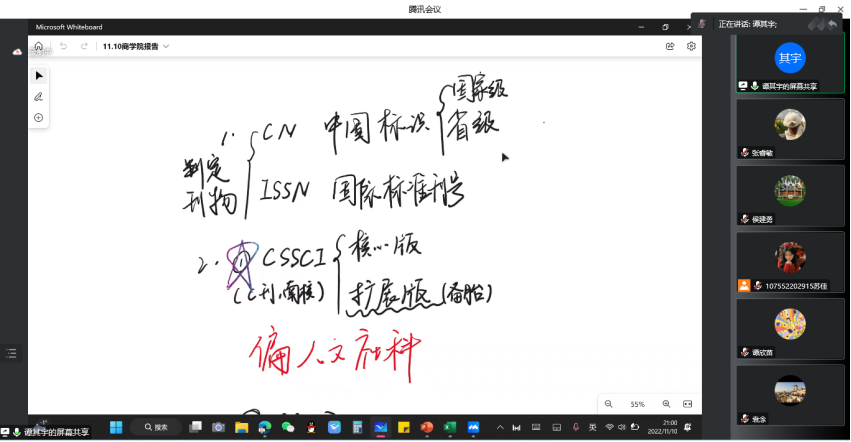 腾讯会议
Microsoft Whiteboard
正在讲话: 谭其宇;
11.10商学院报告
其宇
谭其宇的屏幕共享
张睿敏
侯建勇
107552202915苏佳
谭欣茵
袁念
1. 判定刊物
CN 中国标识
国家级
省级
ISSN 国际标准刊号
2. ① CSSCI
(C刊,南核)
核心版
扩展版 (备胎)
偏人文社科
55%
谭其宇的屏幕共享
搜索
英
21:00
2022/11/10